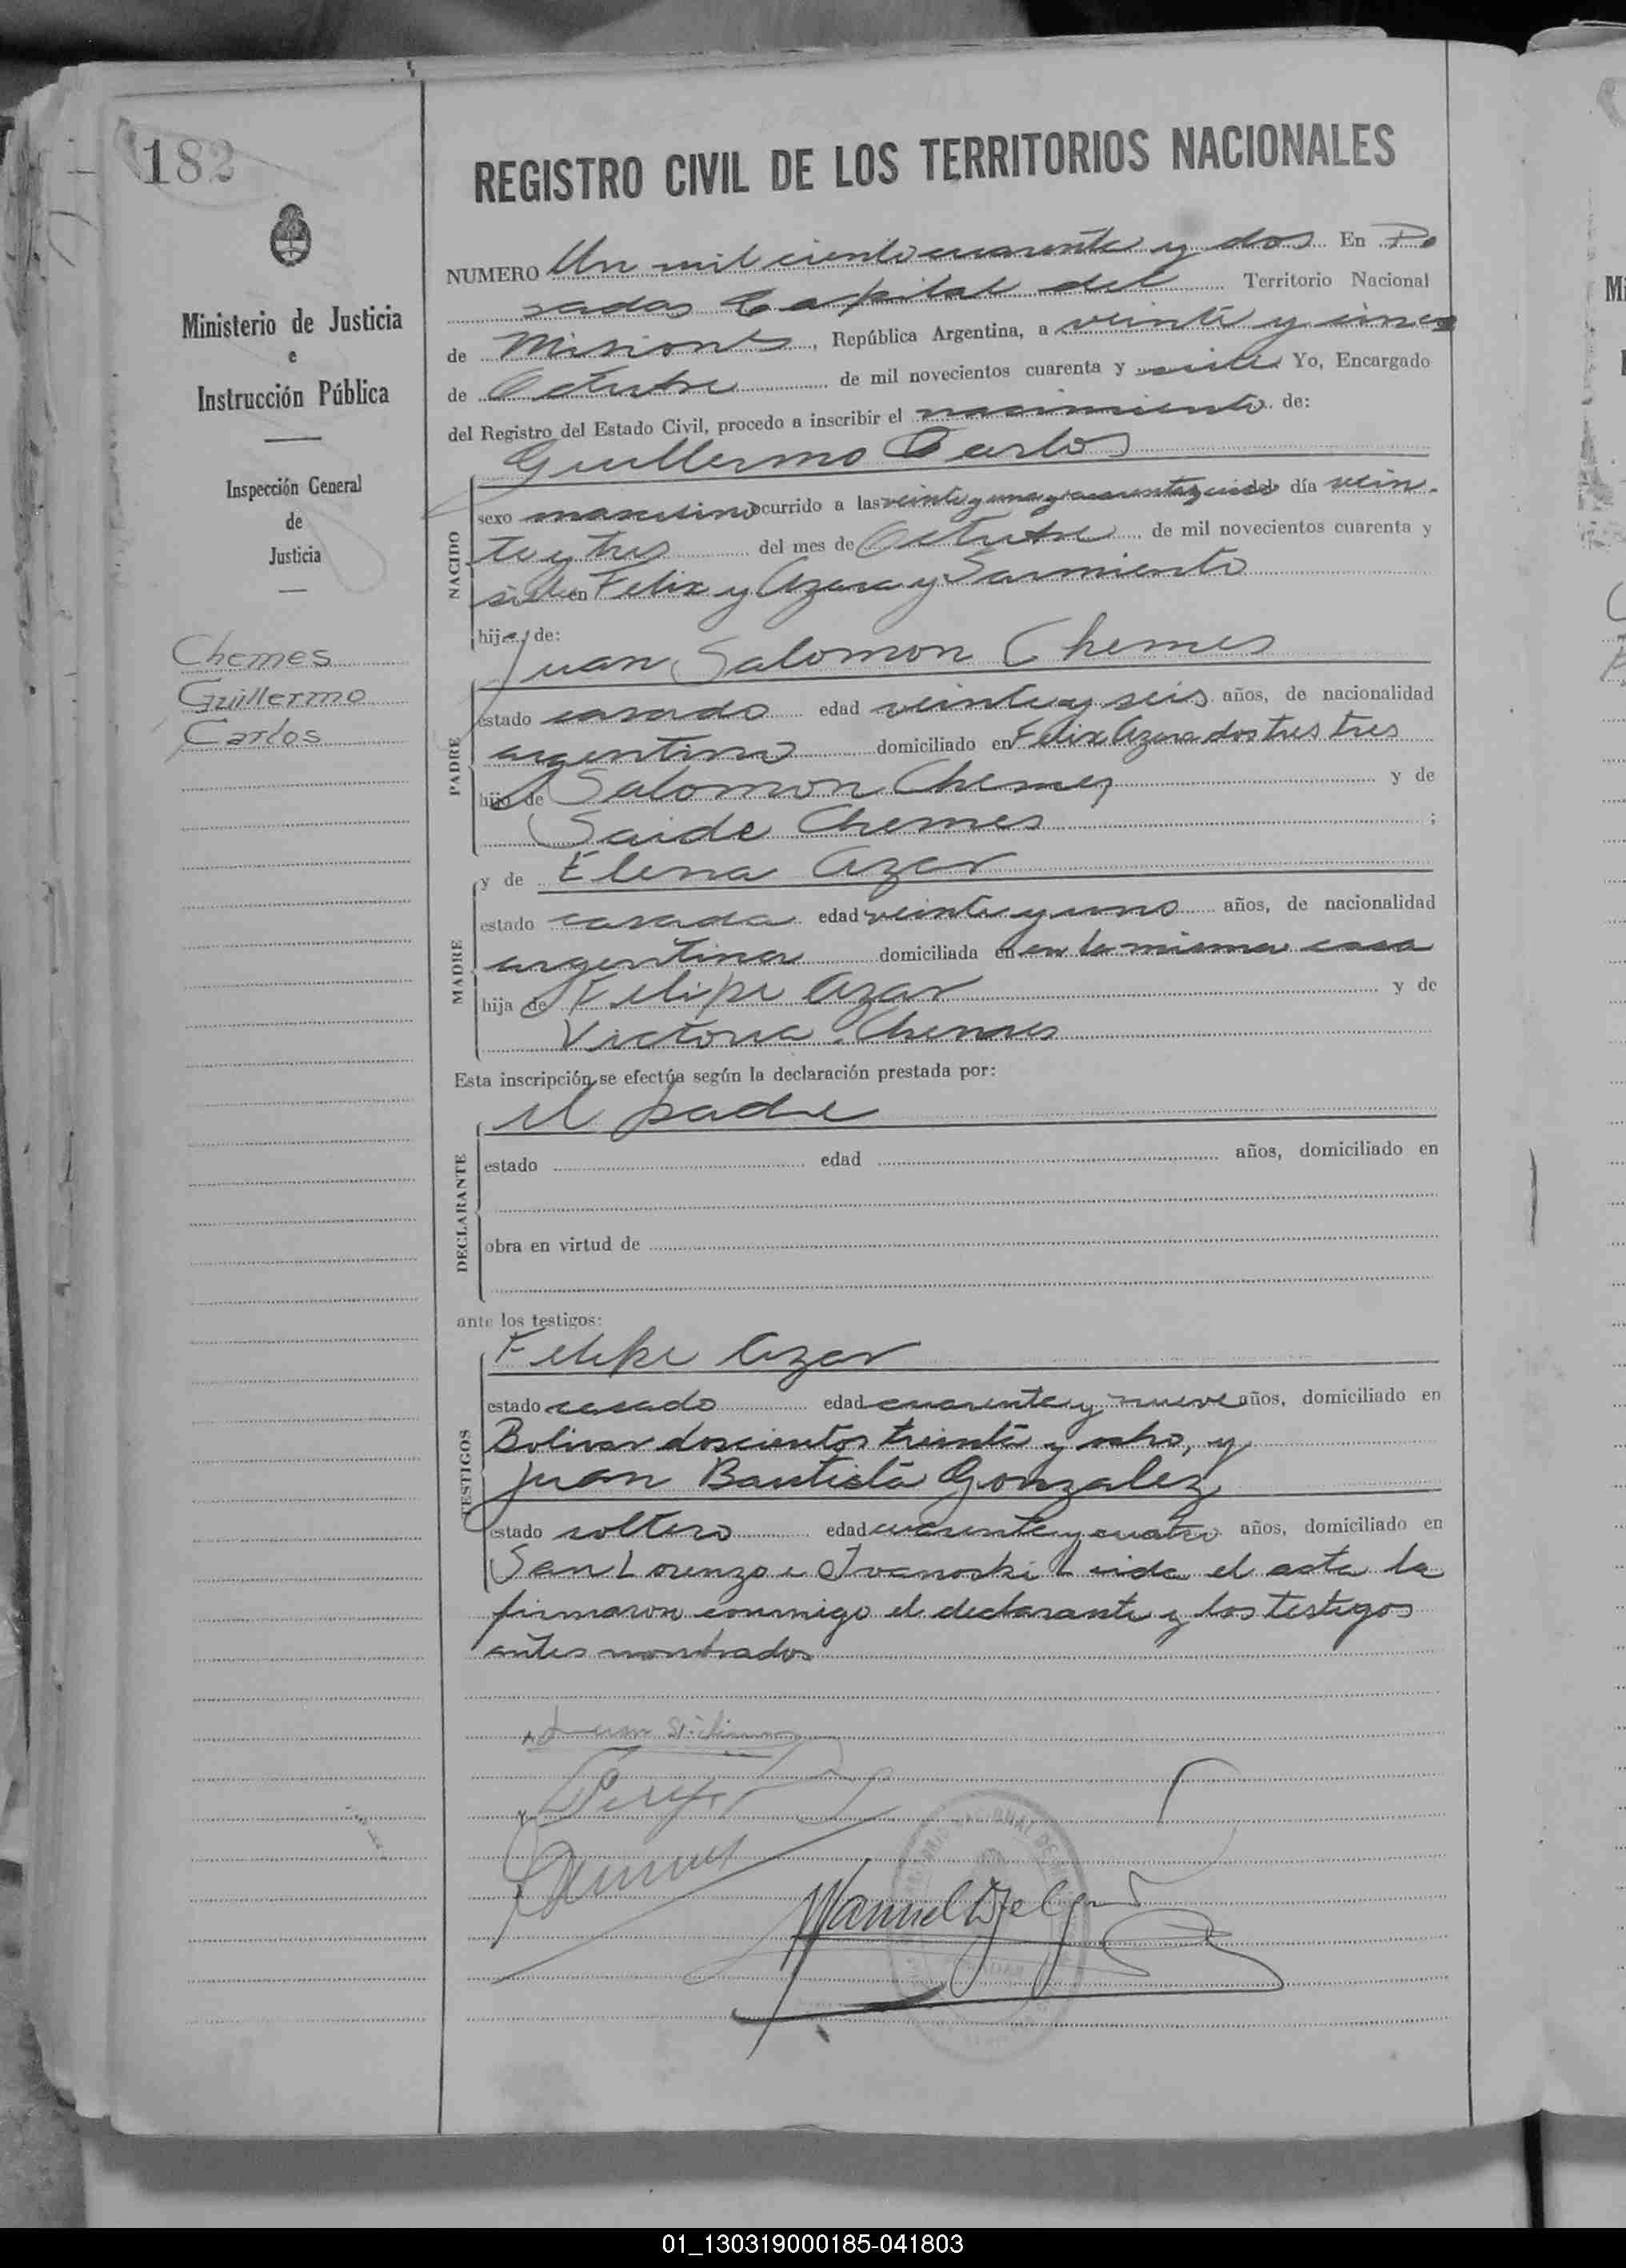 182
REGISTRO CIVIL DE LOS TERRITORIOS NACIONALES
Ministerio de Justicia
e
Instrucción Pública
Inspección General
de
Justicia
Chemes
Guillermo
Carlos
NUMERO Un mil ciento cuarenta y dos En Po
sadas Capital del Territorio Nacional
de Misiones, República Argentina, a veinte y cinco
de Octubre de mil novecientos cuarenta y siete Yo, Encargado
del Registro del Estado Civil, procedo a inscribir el nacimiento de:
Guillermo Carlos
NACIDO
sexo masculino ocurrido a las veinte y una y cuarenta y cinco del día vein-
te y tres del mes de Octubre de mil novecientos cuarenta y
siete en Felix y Azara y Sarmiento
hijo de:
Juan Salomon Chemes
PADRE
estado casado edad veinte y seis años, de nacionalidad
argentino domiciliado en Felix Azara dos tres tres
hijo de Salomon Chemes y de
Saide Chemes ;
y de Elena Azar
MADRE
estado casada edad veinte y uno años, de nacionalidad
argentina domiciliada en en la misma casa
hija de Felipe Azar y de
Victoria Chemes
Esta inscripción se efectúa según la declaración prestada por:
el padre
DECLARANTE
estado edad años, domiciliado en
obra en virtud de
ante los testigos:
Felipe Azar
TESTIGOS
estado casado edad cuarenta y nueve años, domiciliado en
Bolivar doscientos treinta y ocho, y
Juan Bautista Gonzalez
estado soltero edad cuarenta y cuatro años, domiciliado en
San Lorenzo e Ivanoski Leida el acta la
firmaron conmigo el declarante y los testigos
antes nombrados
Manuel Delg
01_130319000185-041803